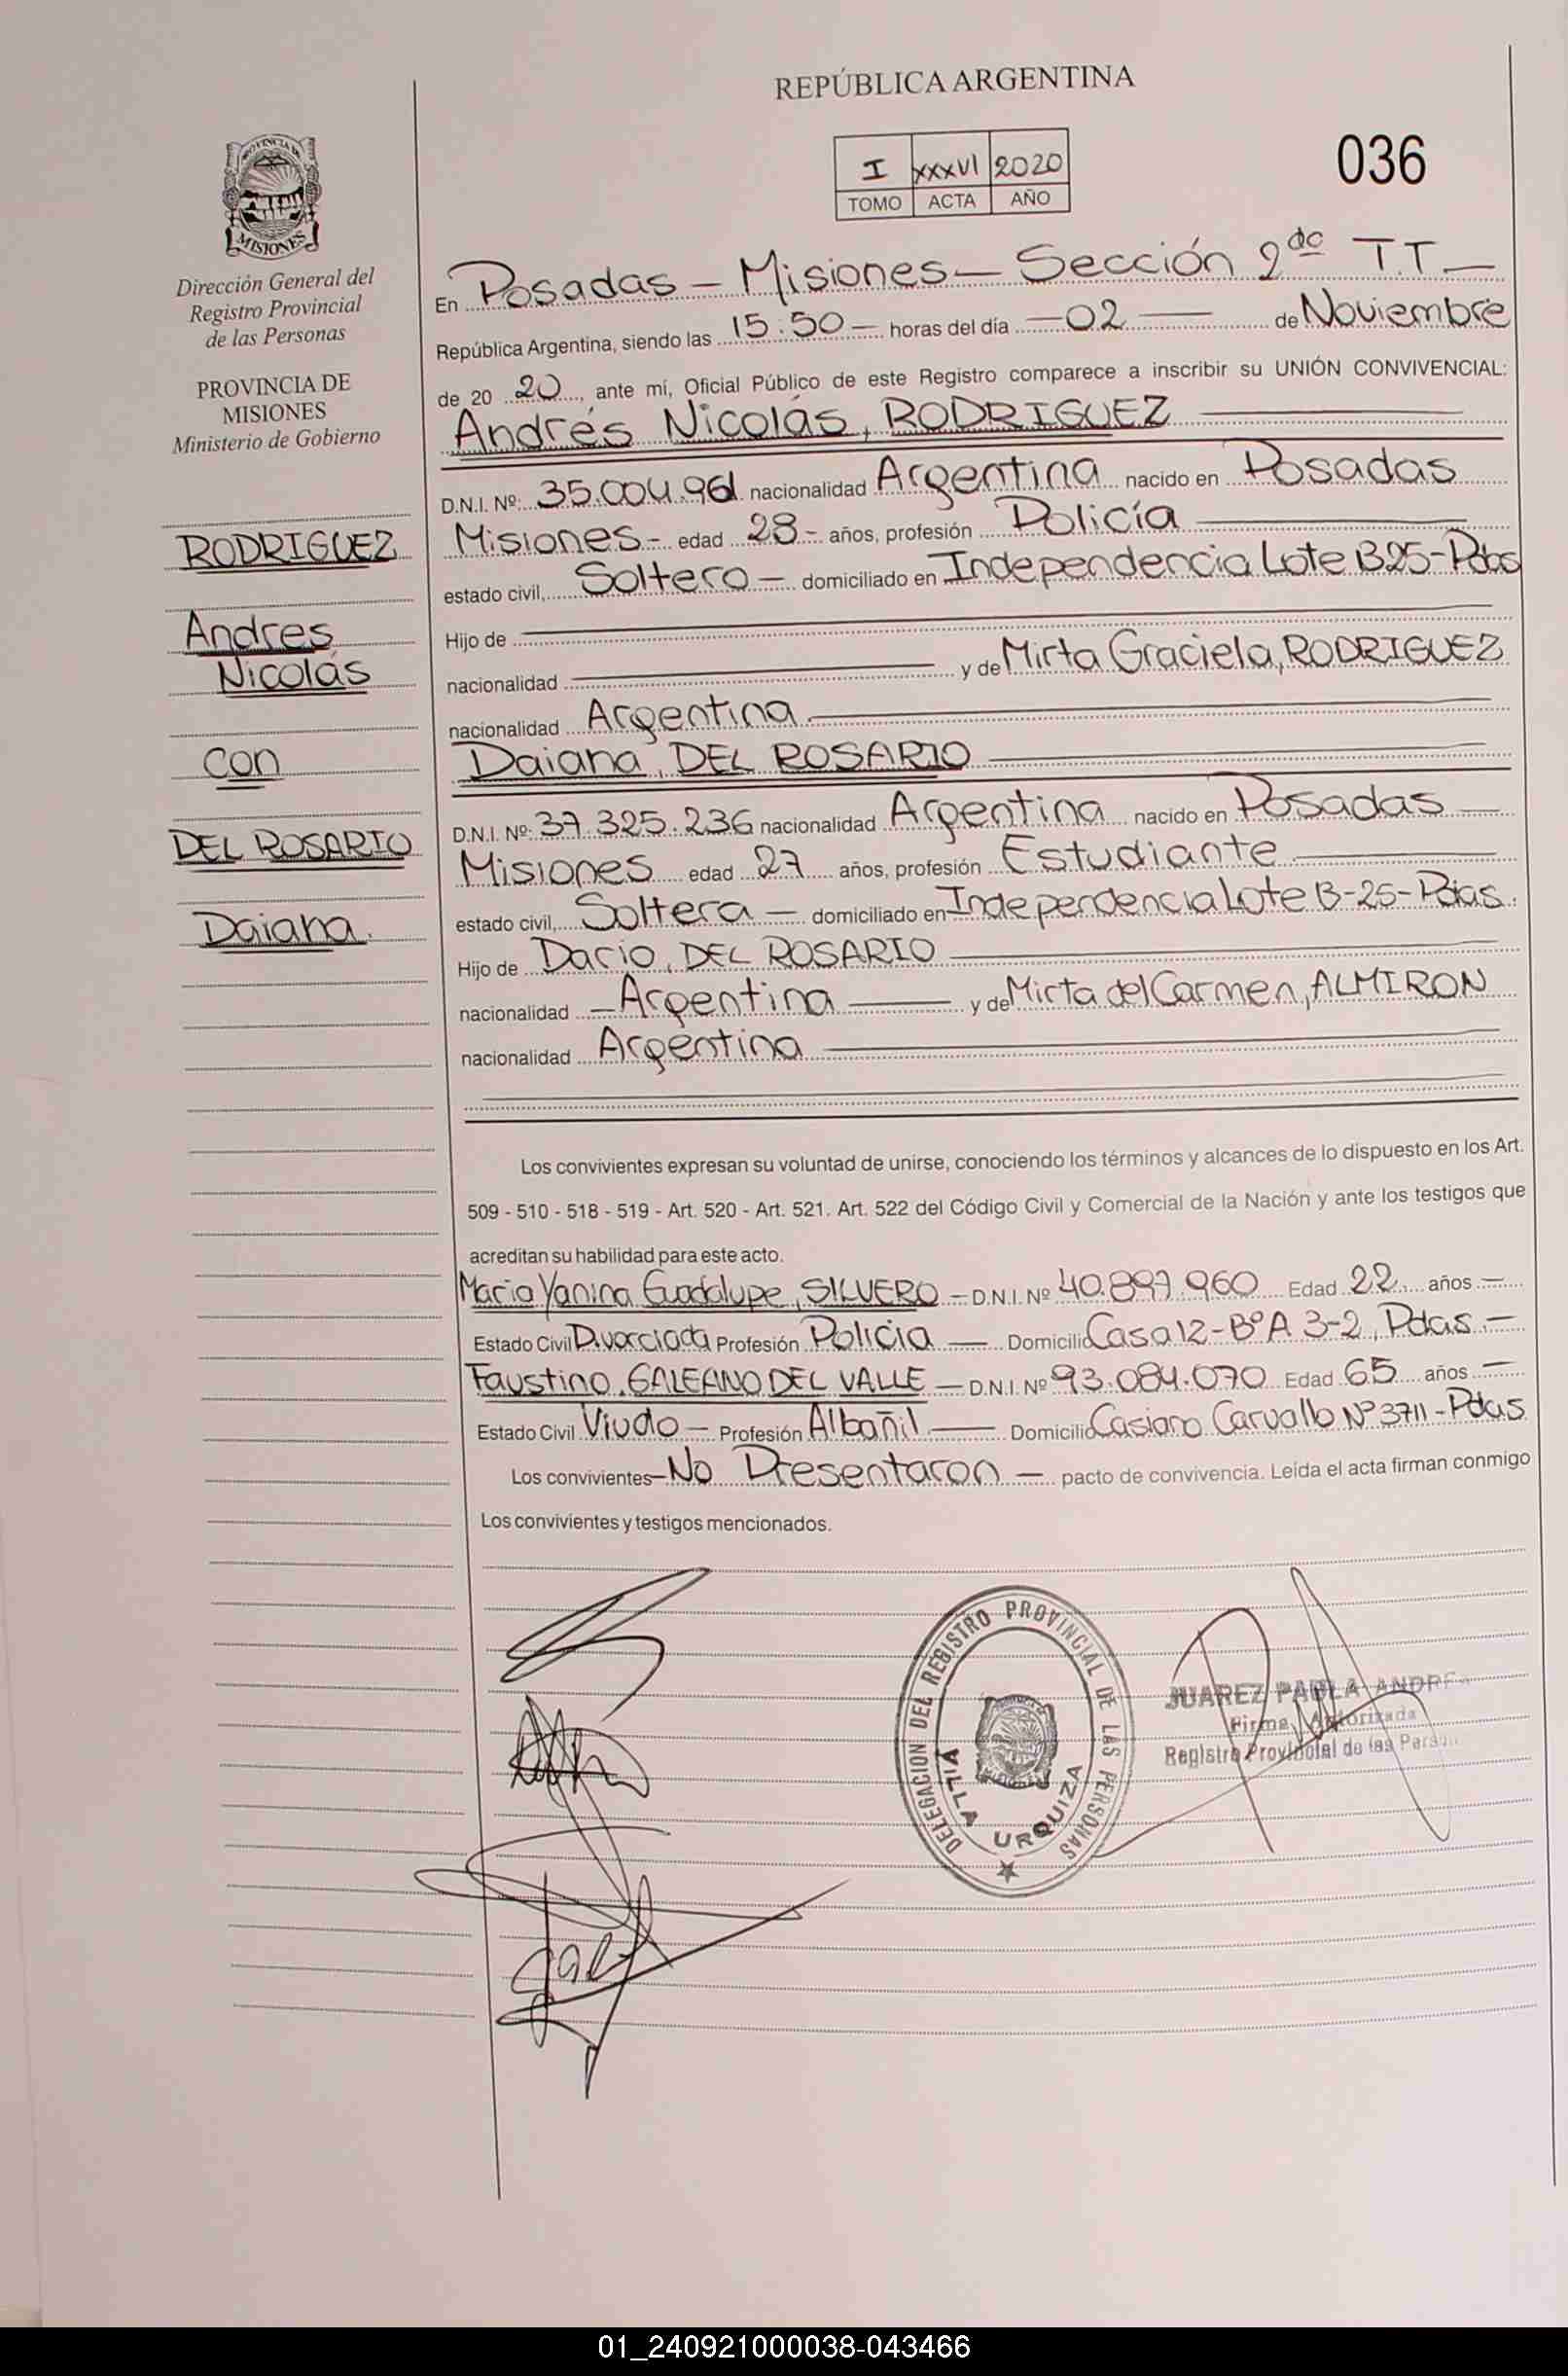 REPÚBLICA ARGENTINA
I XXXVI 2020
TOMO ACTA AÑO
036
PROVINCIA DE
MISIONES
Dirección General del
Registro Provincial
de las Personas
PROVINCIA DE
MISIONES
Ministerio de Gobierno
RODRIGUEZ
Andres
Nicolás
con
DEL ROSARIO
Daiana.
En Posadas - Misiones - Sección 2do T.T -
República Argentina, siendo las 15:50 - horas del día - 02 - de Noviembre
de 20 20, ante mí, Oficial Público de este Registro comparece a inscribir su UNIÓN CONVIVENCIAL:
Andrés Nicolás, RODRIGUEZ
D.N.I. Nº: 35.004.961 nacionalidad Argentina nacido en Posadas
Misiones - edad 28 - años, profesión Policía
estado civil, Soltero - domiciliado en Independencia Lote B25 - Pdas
Hijo de
nacionalidad y de Mirta Graciela, RODRIGUEZ
nacionalidad Argentina
Daiana, DEL ROSARIO
D.N.I. Nº: 37.325.236 nacionalidad Argentina nacido en Posadas -
Misiones edad 27 años, profesión Estudiante
estado civil, Soltera - domiciliado en Independencia Lote B-25 - Pdas.
Hijo de Dario, DEL ROSARIO
nacionalidad - Argentina - y de Mirta del Carmen, ALMIRON
nacionalidad Argentina
Los convivientes expresan su voluntad de unirse, conociendo los términos y alcances de lo dispuesto en los Art.
509 - 510 - 518 - 519 - Art. 520 - Art. 521. Art. 522 del Código Civil y Comercial de la Nación y ante los testigos que
acreditan su habilidad para este acto.
Maria Yanina Guadalupe, SILVERO - D.N.I. Nº 40.897.960 Edad 22 años -
Estado Civil Divorciada Profesión Policia - Domicilio Casa 12 - Bº A 3-2, Pdas -
Faustino, GALEANO DEL VALLE - D.N.I. Nº 93.084.070 Edad 65 años -
Estado Civil Viudo - Profesión Albañil - Domicilio Casiano Carvallo Nº 3711 - Pdas
Los convivientes - No Presentaron - pacto de convivencia. Leída el acta firman conmigo
Los convivientes y testigos mencionados.
DELEGACION DEL REGISTRO PROVINCIAL DE LAS PERSONAS
VILLA URQUIZA
JUAREZ PAOLA ANDREA
Firma Autorizada
Registro Provincial de las Personas
01_240921000038-043466